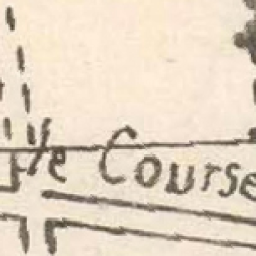 Ye Course